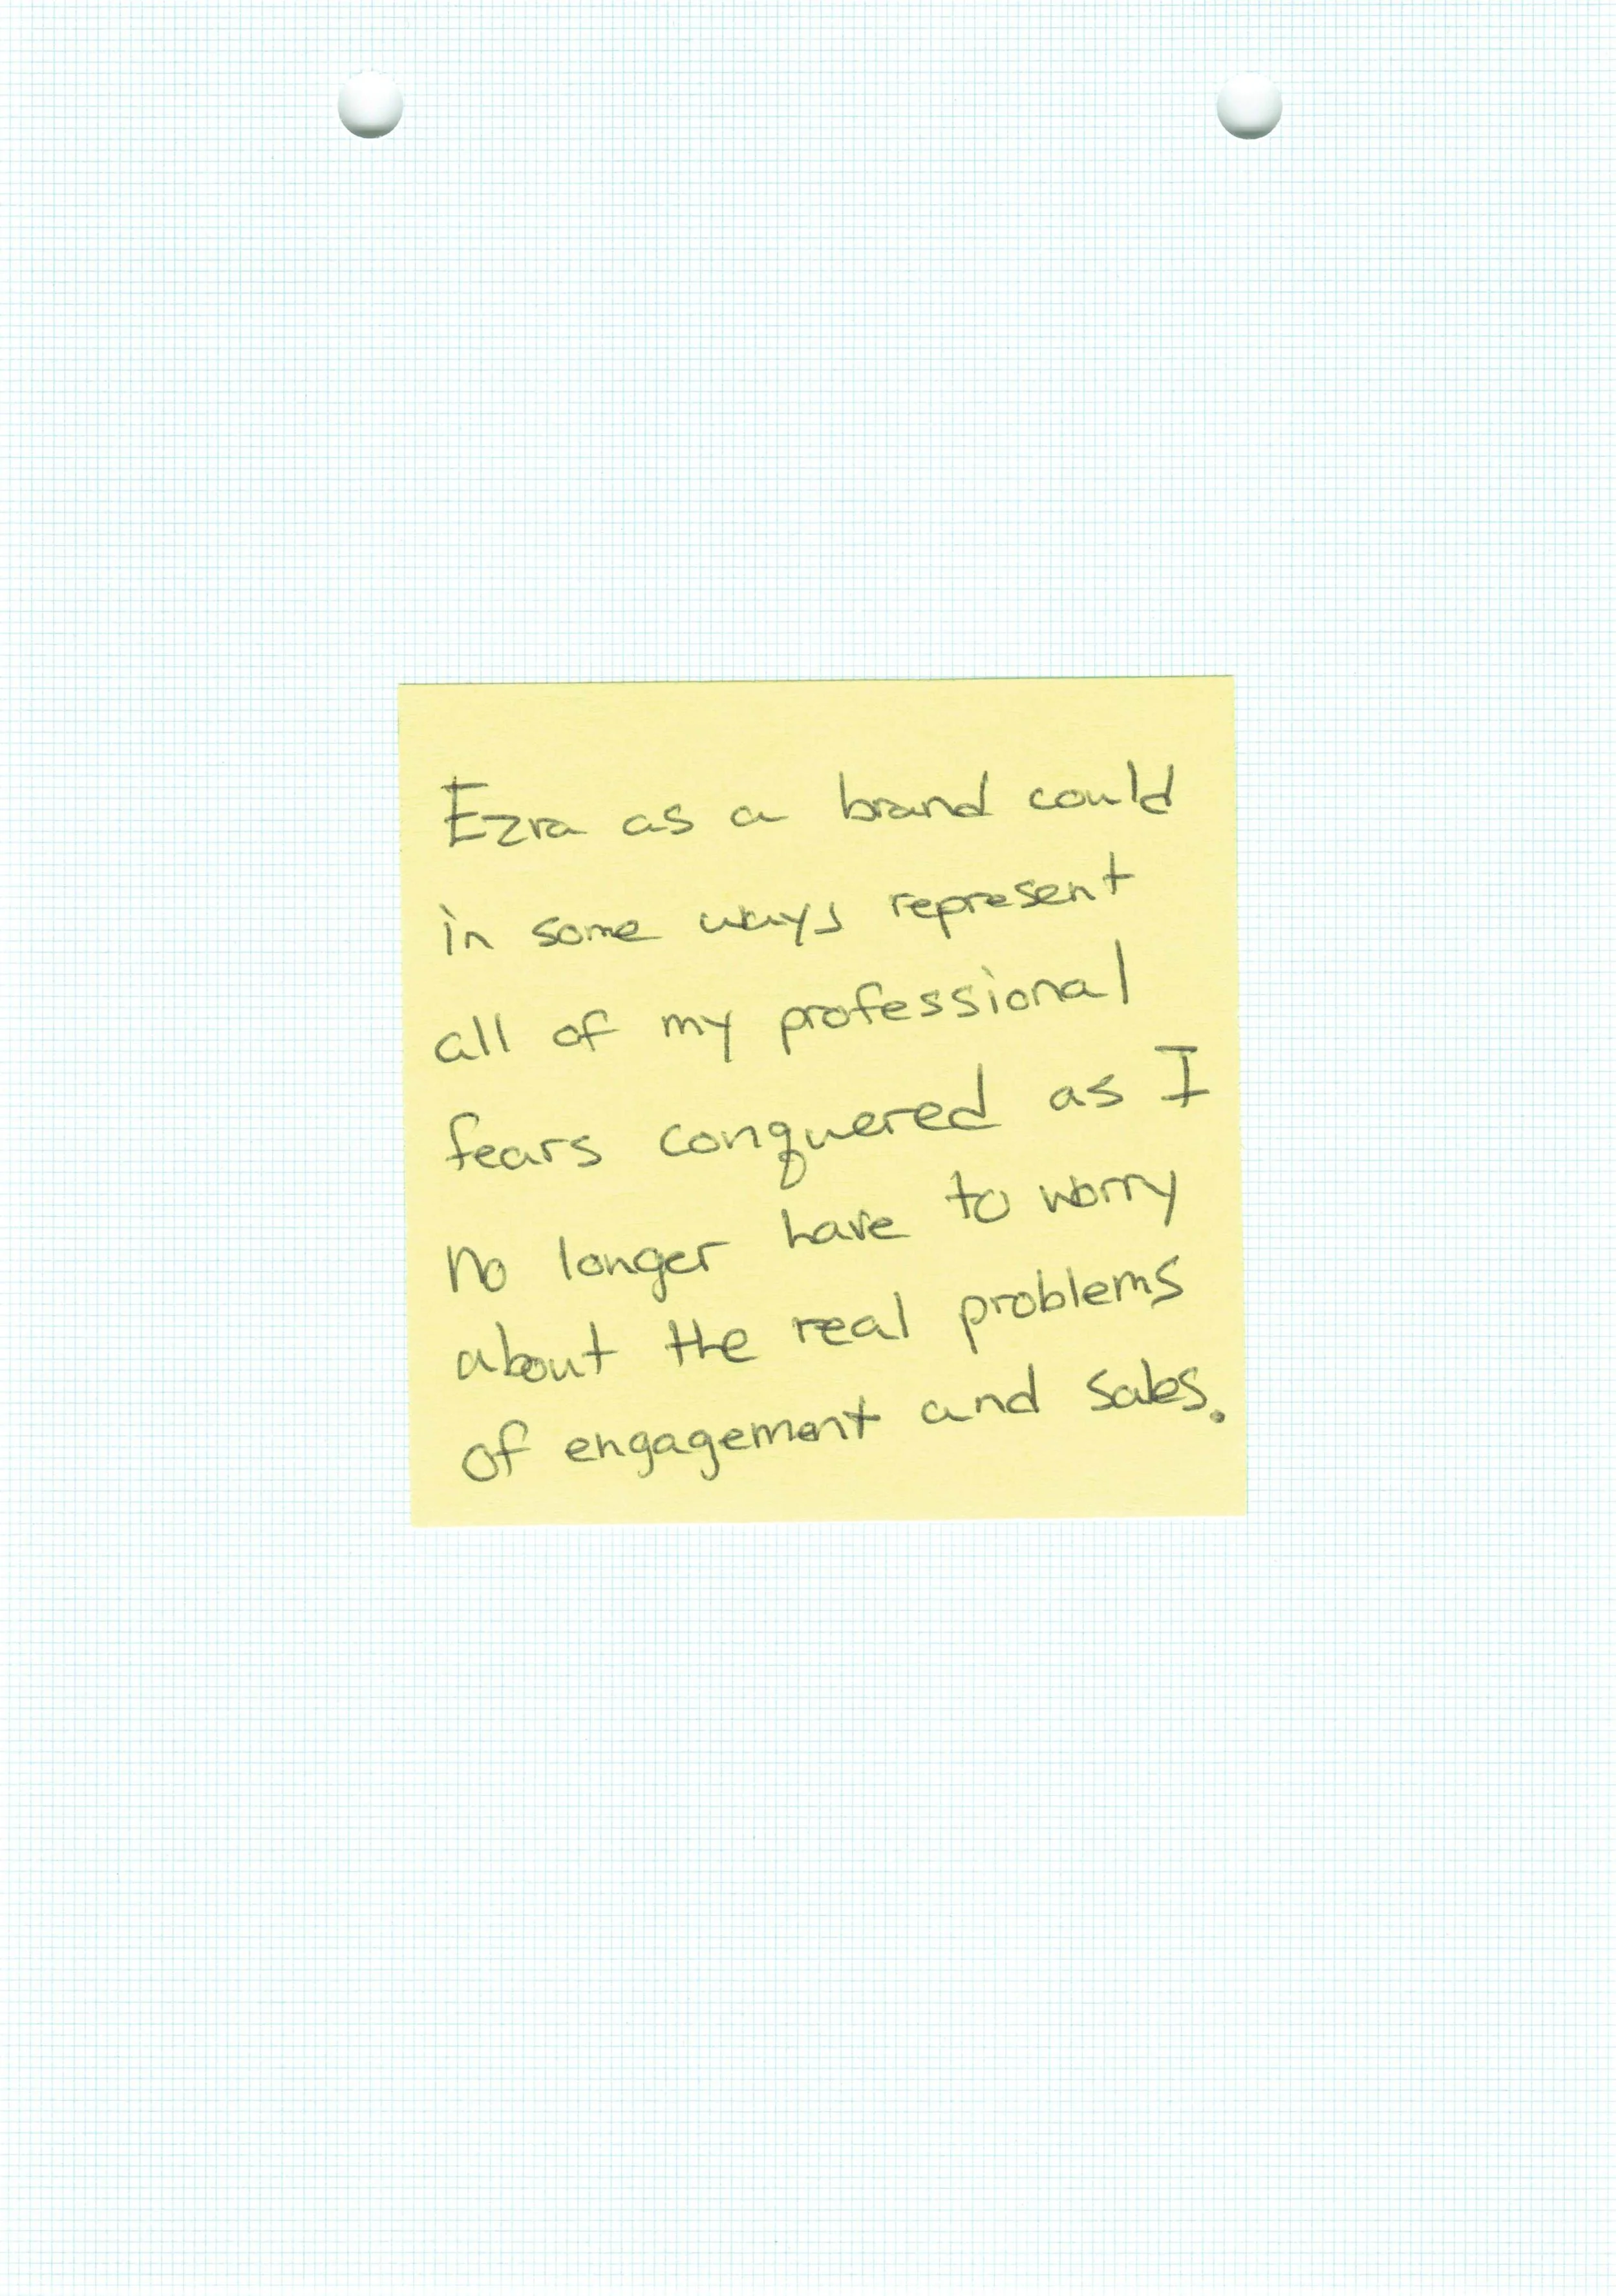 Ezra as a brand could
in some ways represent
all of my professional
fears conquered as I
no longer have to worry
about the real problems
of engagement and sales.